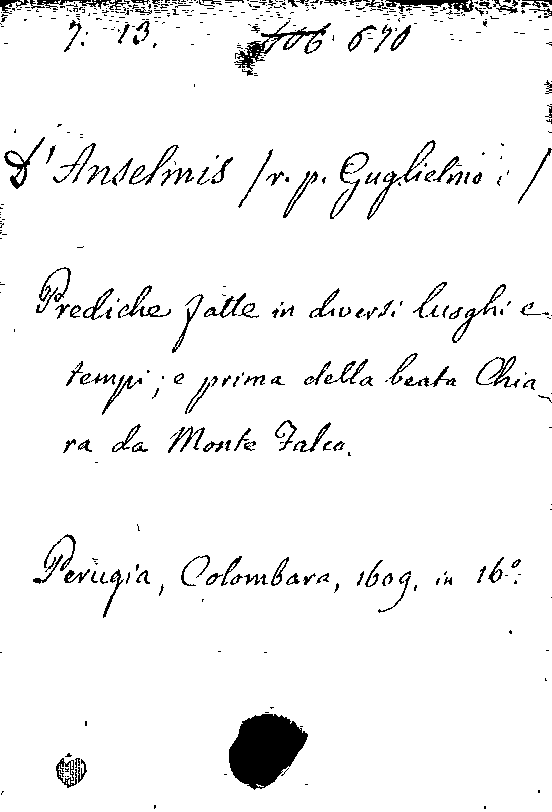 7. 13. 106 670
D'Anselmis /r. p. Guglielmo :/
Prediche fatte in diversi luoghi e
tempi; e prima della beata Chia_
ra da Monte Falco.
Perugia, Colombara, 1609. in 16º.